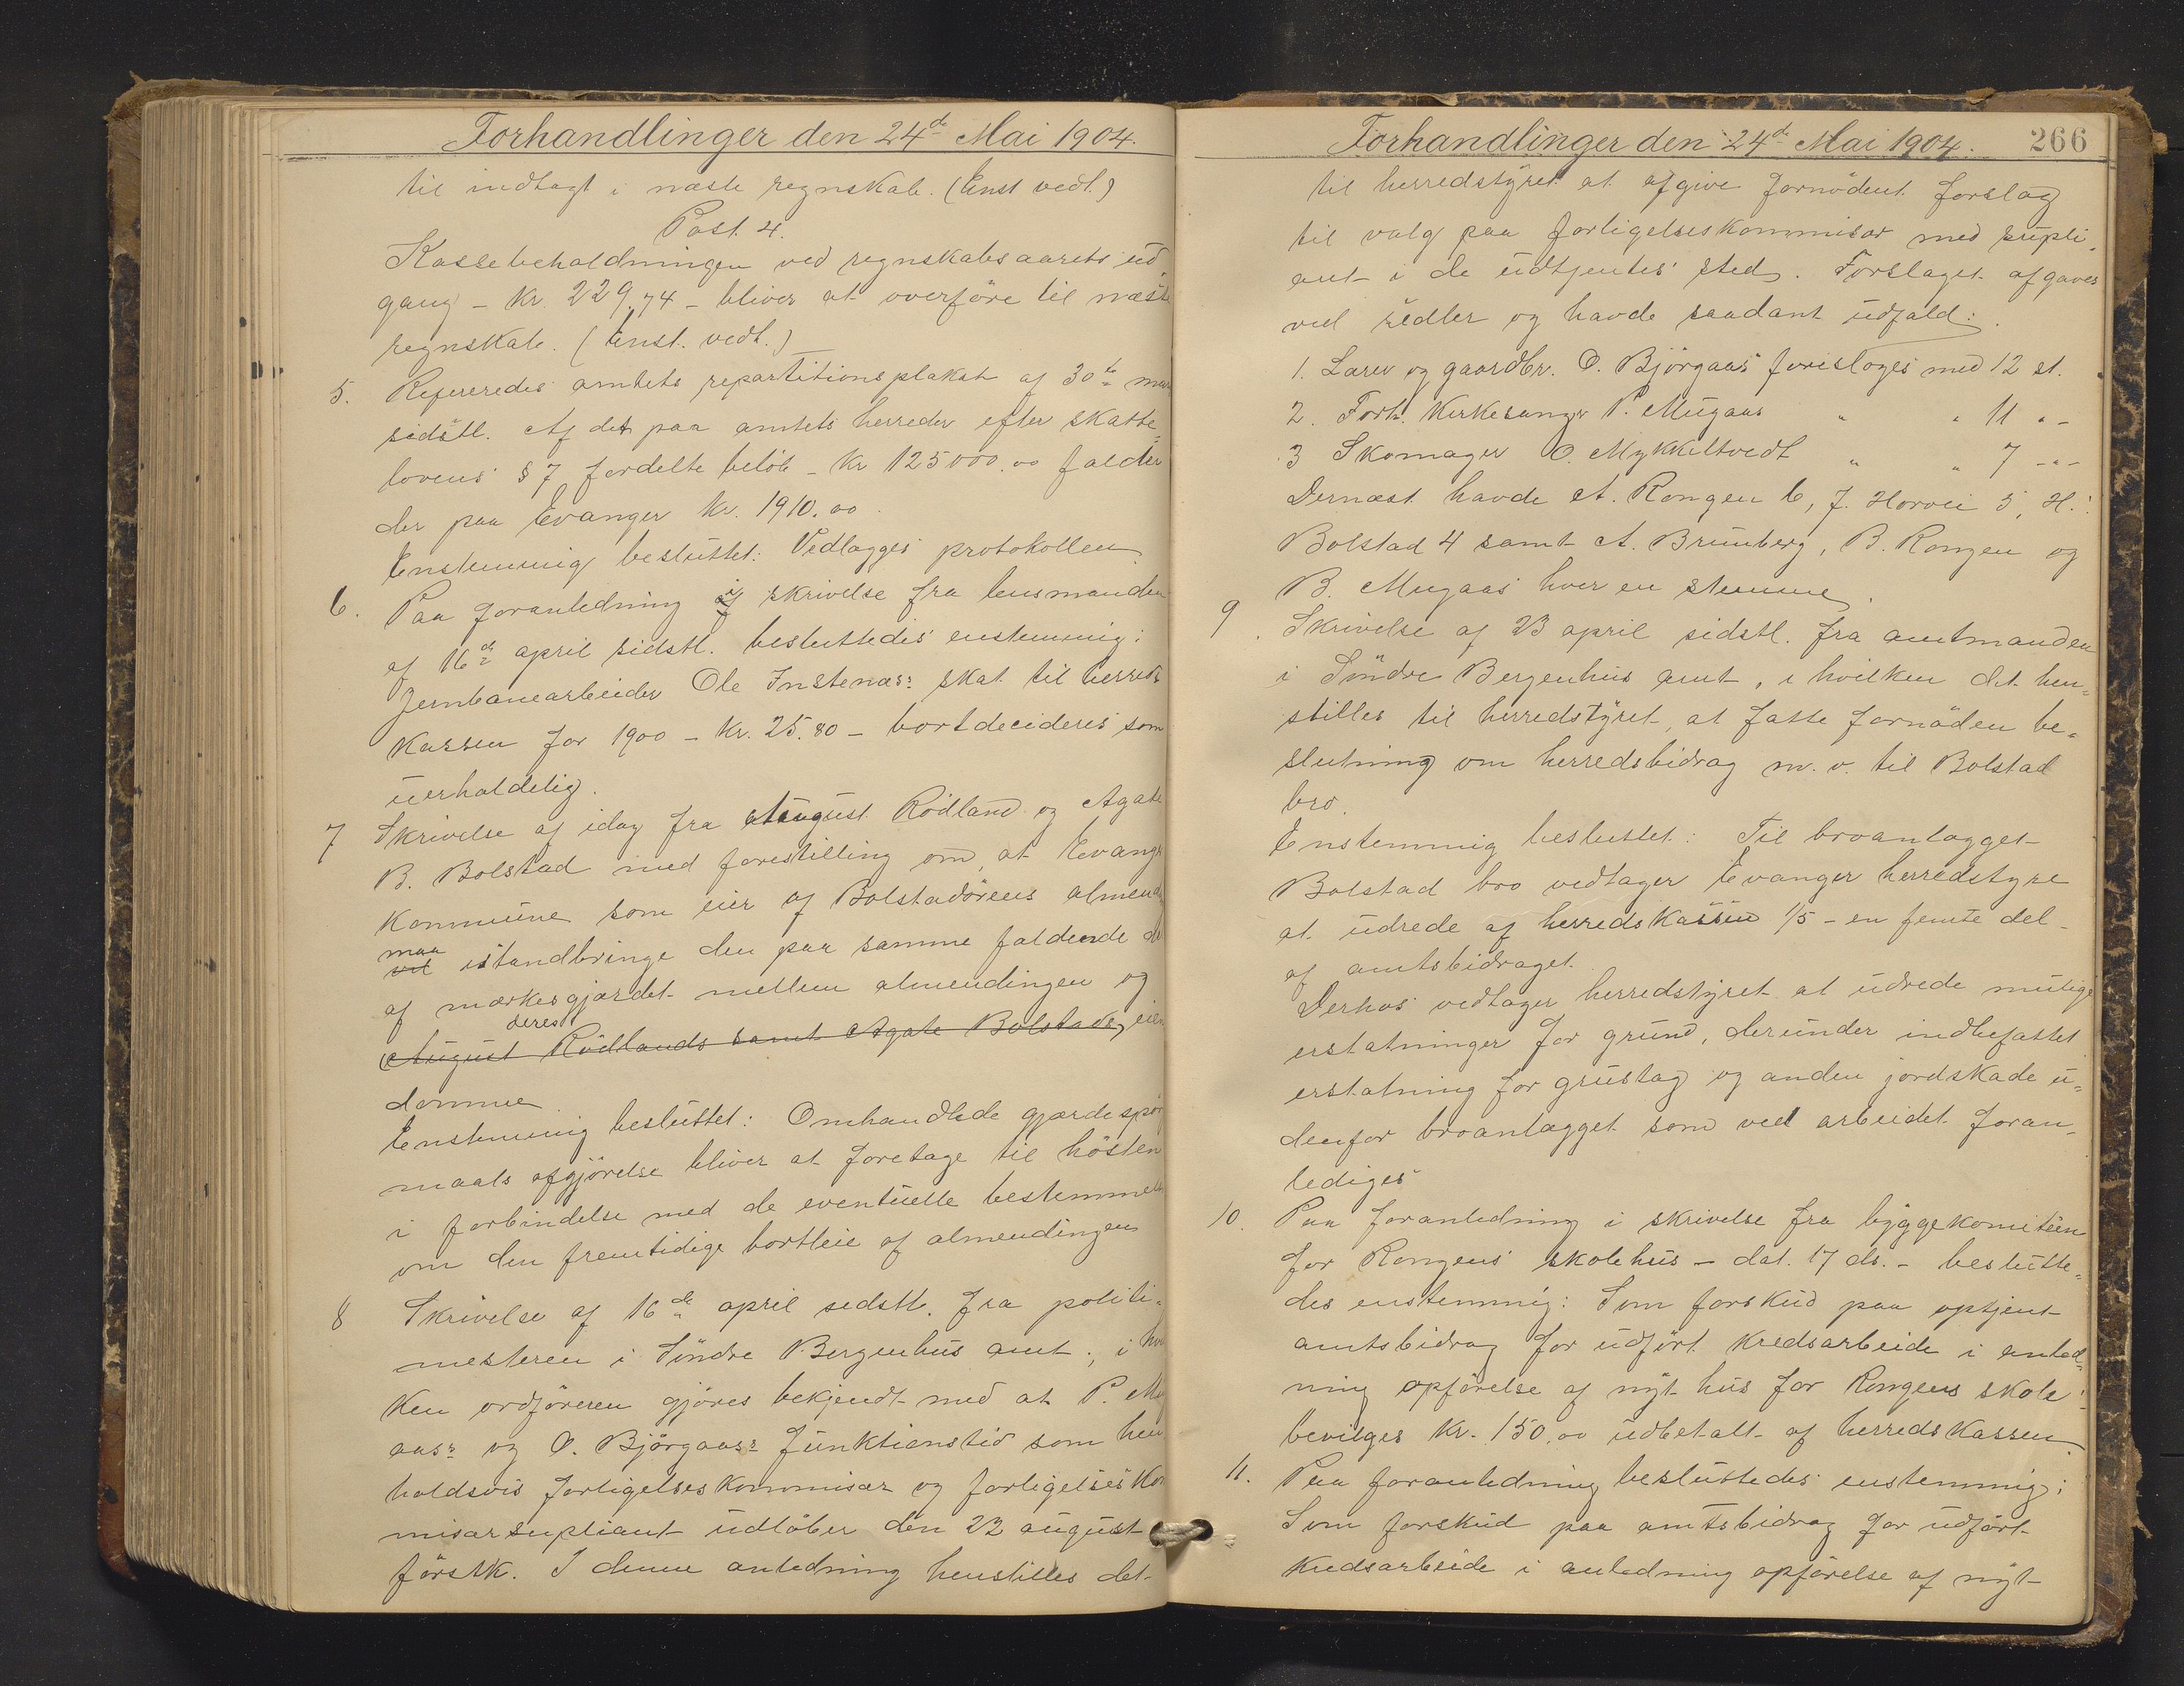 Forhandlinger den 24de Mai 1904.
til indtagt i næste regnskab. (Enst vedt.)
Post 4.
Kassebeholdningen ved regnskabsaarets ud
gang - kr. 229,74 - bliver at overføre til næste
regnskab. (Enst. vedt.)
5. Refereredes amtets repartitionsplakat af 30te mars
sidstl. Af det paa amtets herreder efter skatte-
lovens § 7 fordelte beløb - kr 125000.00 falder
der paa Evanger kr. 1910.00.
Enstemmig besluttet: Vedlægges protokollen
6. Paa foranledning i skrivelse fra lensmanden
af 16de april sidstl. besluttedes enstemmig:
Jernbanearbeider Ole Instenæs: skat til herreds
kassen for 1900 - kr. 25.80 - bortdecideres som
uerholdelig.
7 Skrivelse af idag fra August Rödland og Agate
B. Bolstad med forestilling om, at Evanger
kommune som eier af Bolstadörens almen
maa
vil istandbringe den paa samme faldende del
af mærkesgjærdet mellem almendingen og
deres
August Rödlands samt Agate Bolstads eien
domme.
Enstemmig besluttet: Omhandlede gjærdespör
maals afgjörelse bliver at foretage til hösten
i forbindelse med de eventuelle bestemmelser
om den fremtidige bortleie af almendingen
8 Skrivelse af 16de april sidstl. fra politi-
mesteren i Söndre Bergenhus amt, i hvil
ken ordföreren gjöres bekjendt med at P. Mug
aas: og O. Björgaas: funktionstid som hen
holdsvis forligelseskommisær og forligelseskom
misærsupliant udlöber den 23 august
förstk. I denne anledning henstilles det
Forhandlinger den 24de Mai 1904. 266
til herredstyret at afgive fornödent forslag
til valg paa forligelseskommisær med supli-
ant i de udtjentes sted. Forslaget afgaves
ved sedler og havde saadant udfald:
1. Lærer og gaardbr. O. Björgaas foresloges med 12 st.
2. Forh. Kirkesanger P. Mugaas " " 11 " -
3 Skomager O. Mykkeltvedt " " 7 - " -
Dernæst havde A. Rongen 6, J. Horvei 5, H.
Bolstad 4 samt A. Brunberg, B. Rongen og
B. Mugaas hver en stemme.
9. Skrivelse af 23 april sidstl. fra amtmanden
i Söndre Bergenhus amt, i hvilken det hen-
stilles til herredstyret, at fatte fornöden be-
slutning om herredsbidrag m.v. til Bolstad
bro.
Enstemmig besluttet: Til broanlægget
Bolstad bro vedtager Evanger herredstyre
at udrede af herredskassen 1/5 - en femte del -
af amtsbidraget.
Derhos vedtager herredstyret at udrede mulige
erstatninger for grund, derunder indbefattet
erstatning for grustag og anden jordskade u-
denfor broanlægget som ved arbeidet foran-
lediges
10. Paa foranledning i skrivelse fra byggekomiteen
for Rongens skolehus - dat. 17 ds. - beslutte-
des enstemmig: Som forskud paa optjent
amtsbidrag for udfört kredsarbeide i anled-
ning opförelse af nyt hus for Rongens skole
bevilges kr. 150,00 udbetalt af herredskassen.
11. Paa foranledning besluttedes enstemmig:
Som forskud paa amtsbidrag for udfört
kredsarbeide i anledning opförelse af nyt